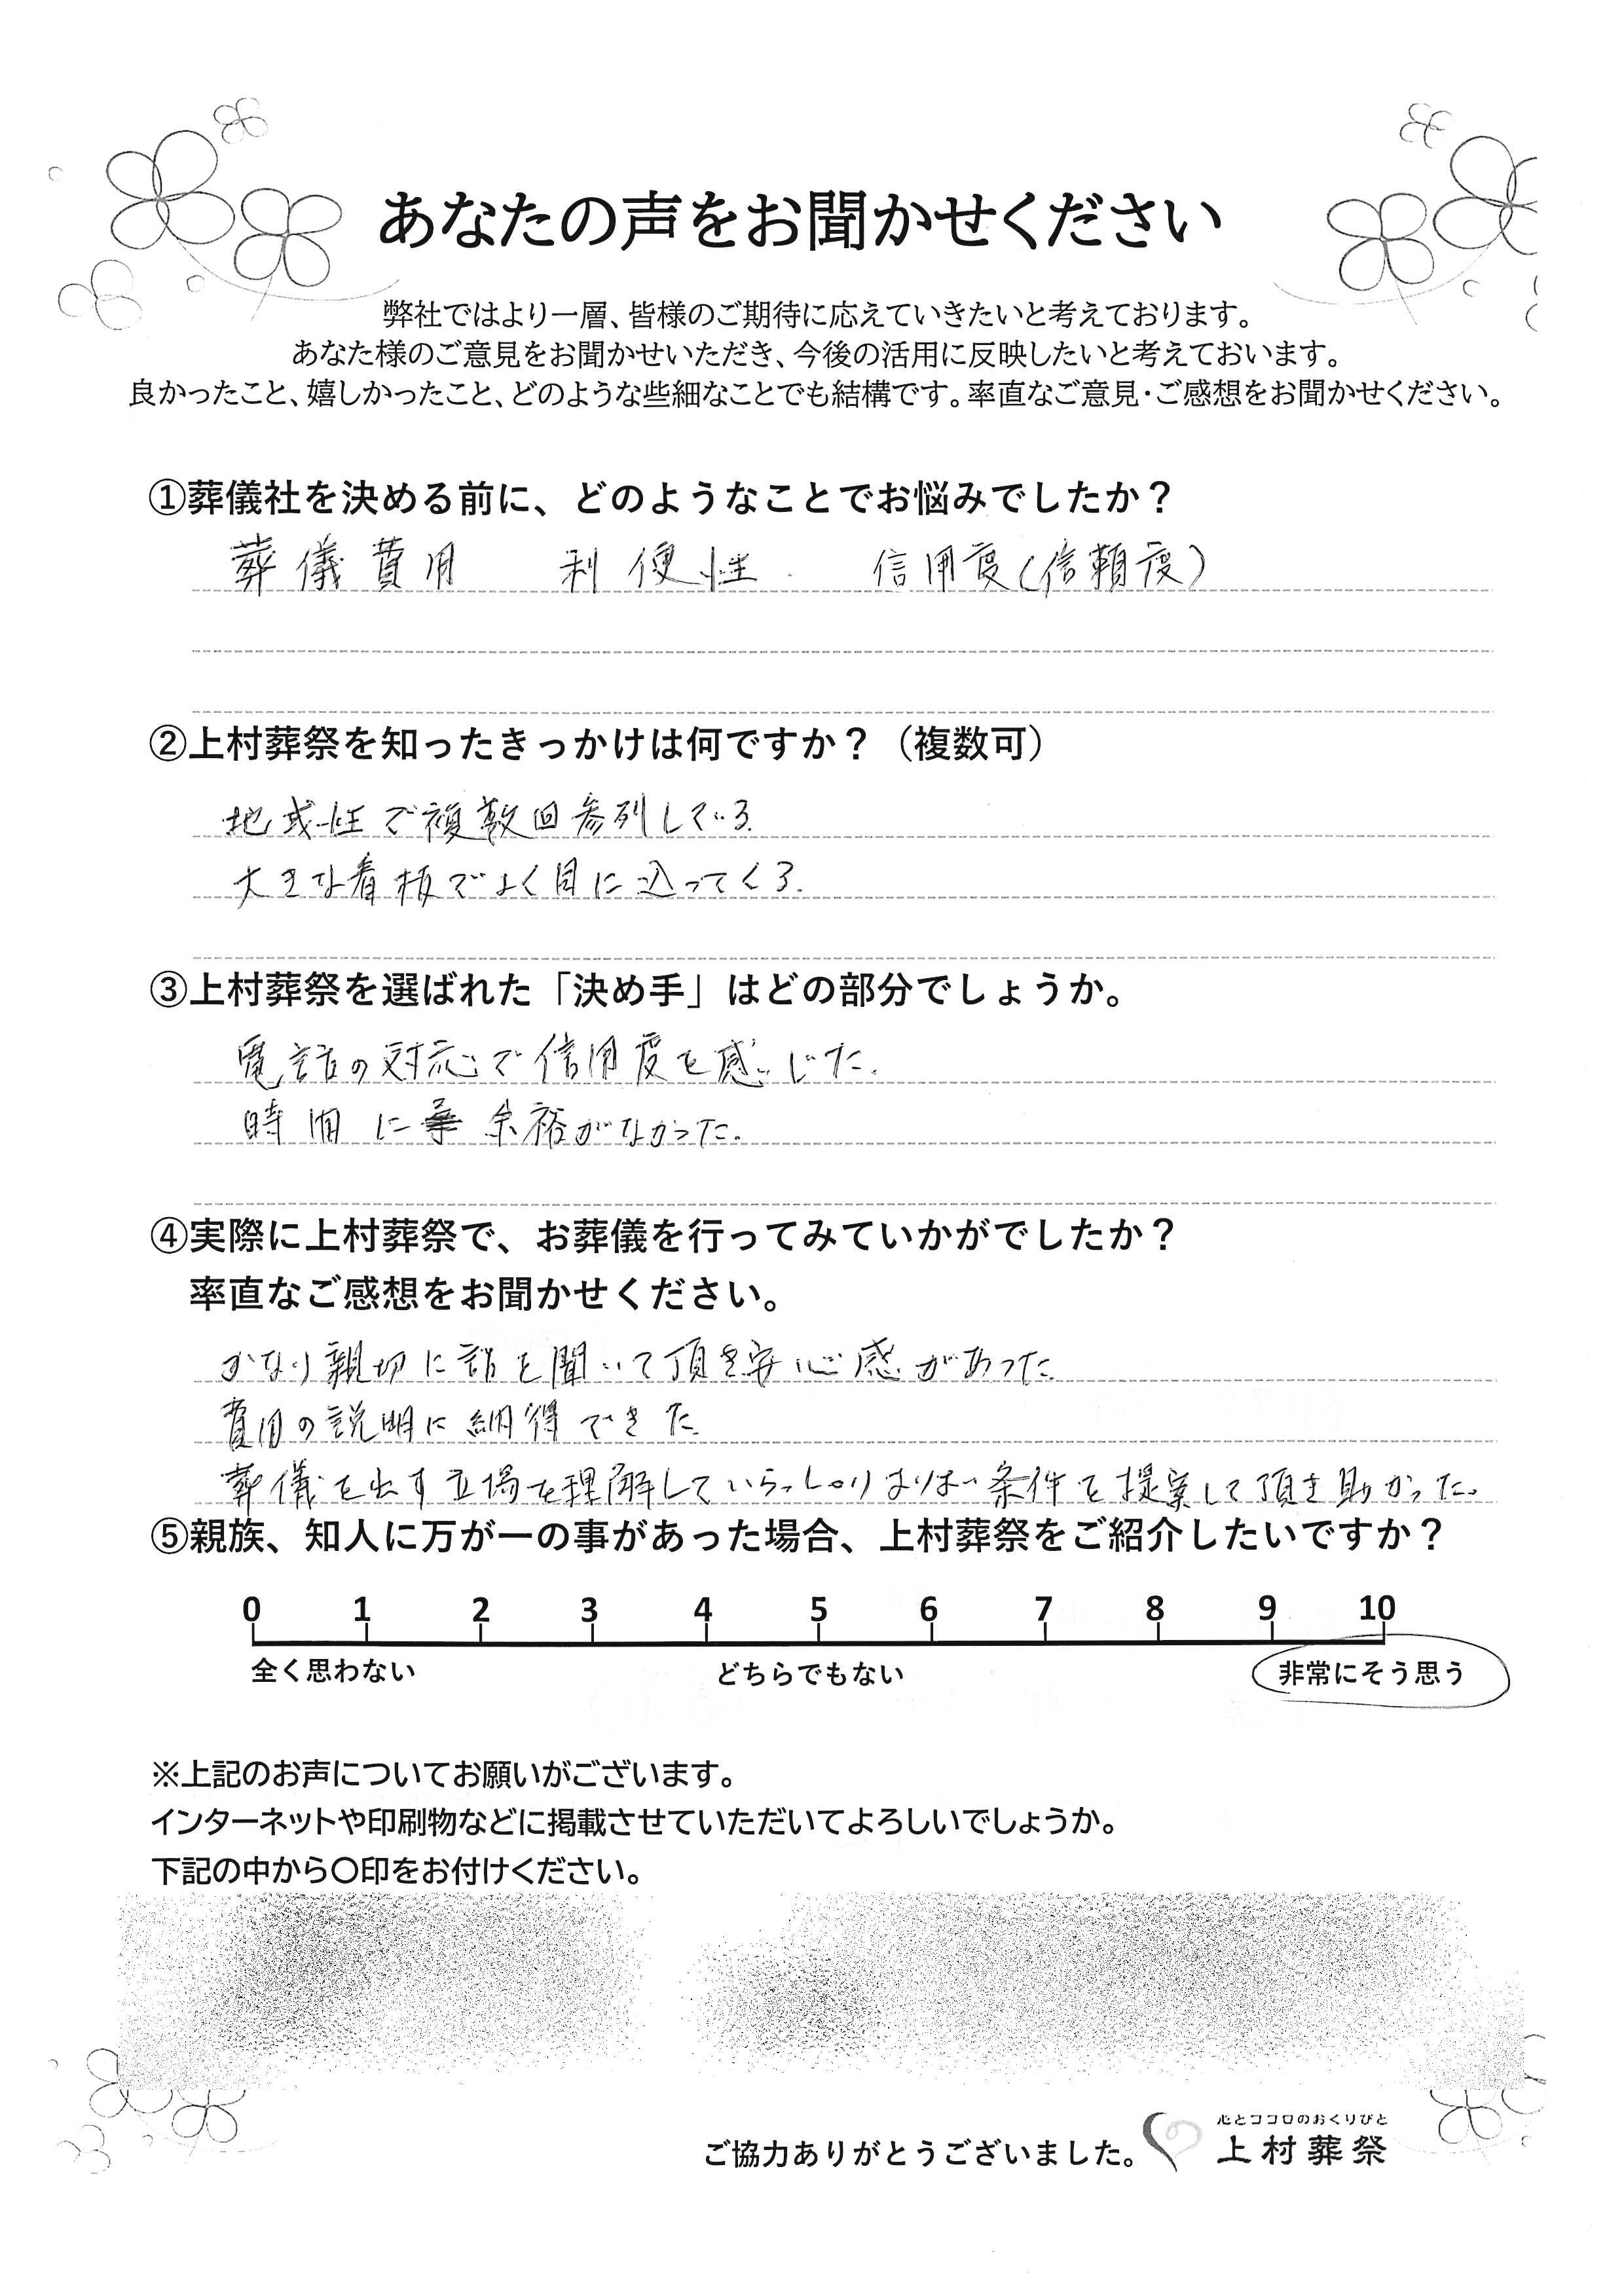 あなたの声をお聞かせください
弊社ではより一層、皆様のご期待に応えていきたいと考えております。
あなた様のご意見をお聞かせいただき、今後の活用に反映したいと考えておいます。
良かったこと、嬉しかったこと、どのような些細なことでも結構です。率直なご意見・ご感想をお聞かせください。
①葬儀社を決める前に、どのようなことでお悩みでしたか？
葬儀費用 利便性. 信用度(信頼度)
②上村葬祭を知ったきっかけは何ですか？（複数可）
地域性で複数回参列している.
大きな看板でよく目に込ってくる.
③上村葬祭を選ばれた「決め手」はどの部分でしょうか。
電話の対応で信用度を感じた.
時間に 余裕がなかった.
④実際に上村葬祭で、お葬儀を行ってみていかがでしたか？
率直なご感想をお聞かせください。
かなり親切に話を聞いて頂き安心感があった.
費用の説明に納得できた.
葬儀を出す立場を理解していらっしゃり 条件を提案して頂き助かった.
⑤親族、知人に万が一の事があった場合、上村葬祭をご紹介したいですか？
0 1 2 3 4 5 6 7 8 9 10
全く思わない どちらでもない 非常にそう思う
※上記のお声についてお願いがございます。
インターネットや印刷物などに掲載させていただいてよろしいでしょうか。
下記の中から〇印をお付けください。
心とココロのおくりびと
ご協力ありがとうございました。 上村葬祭